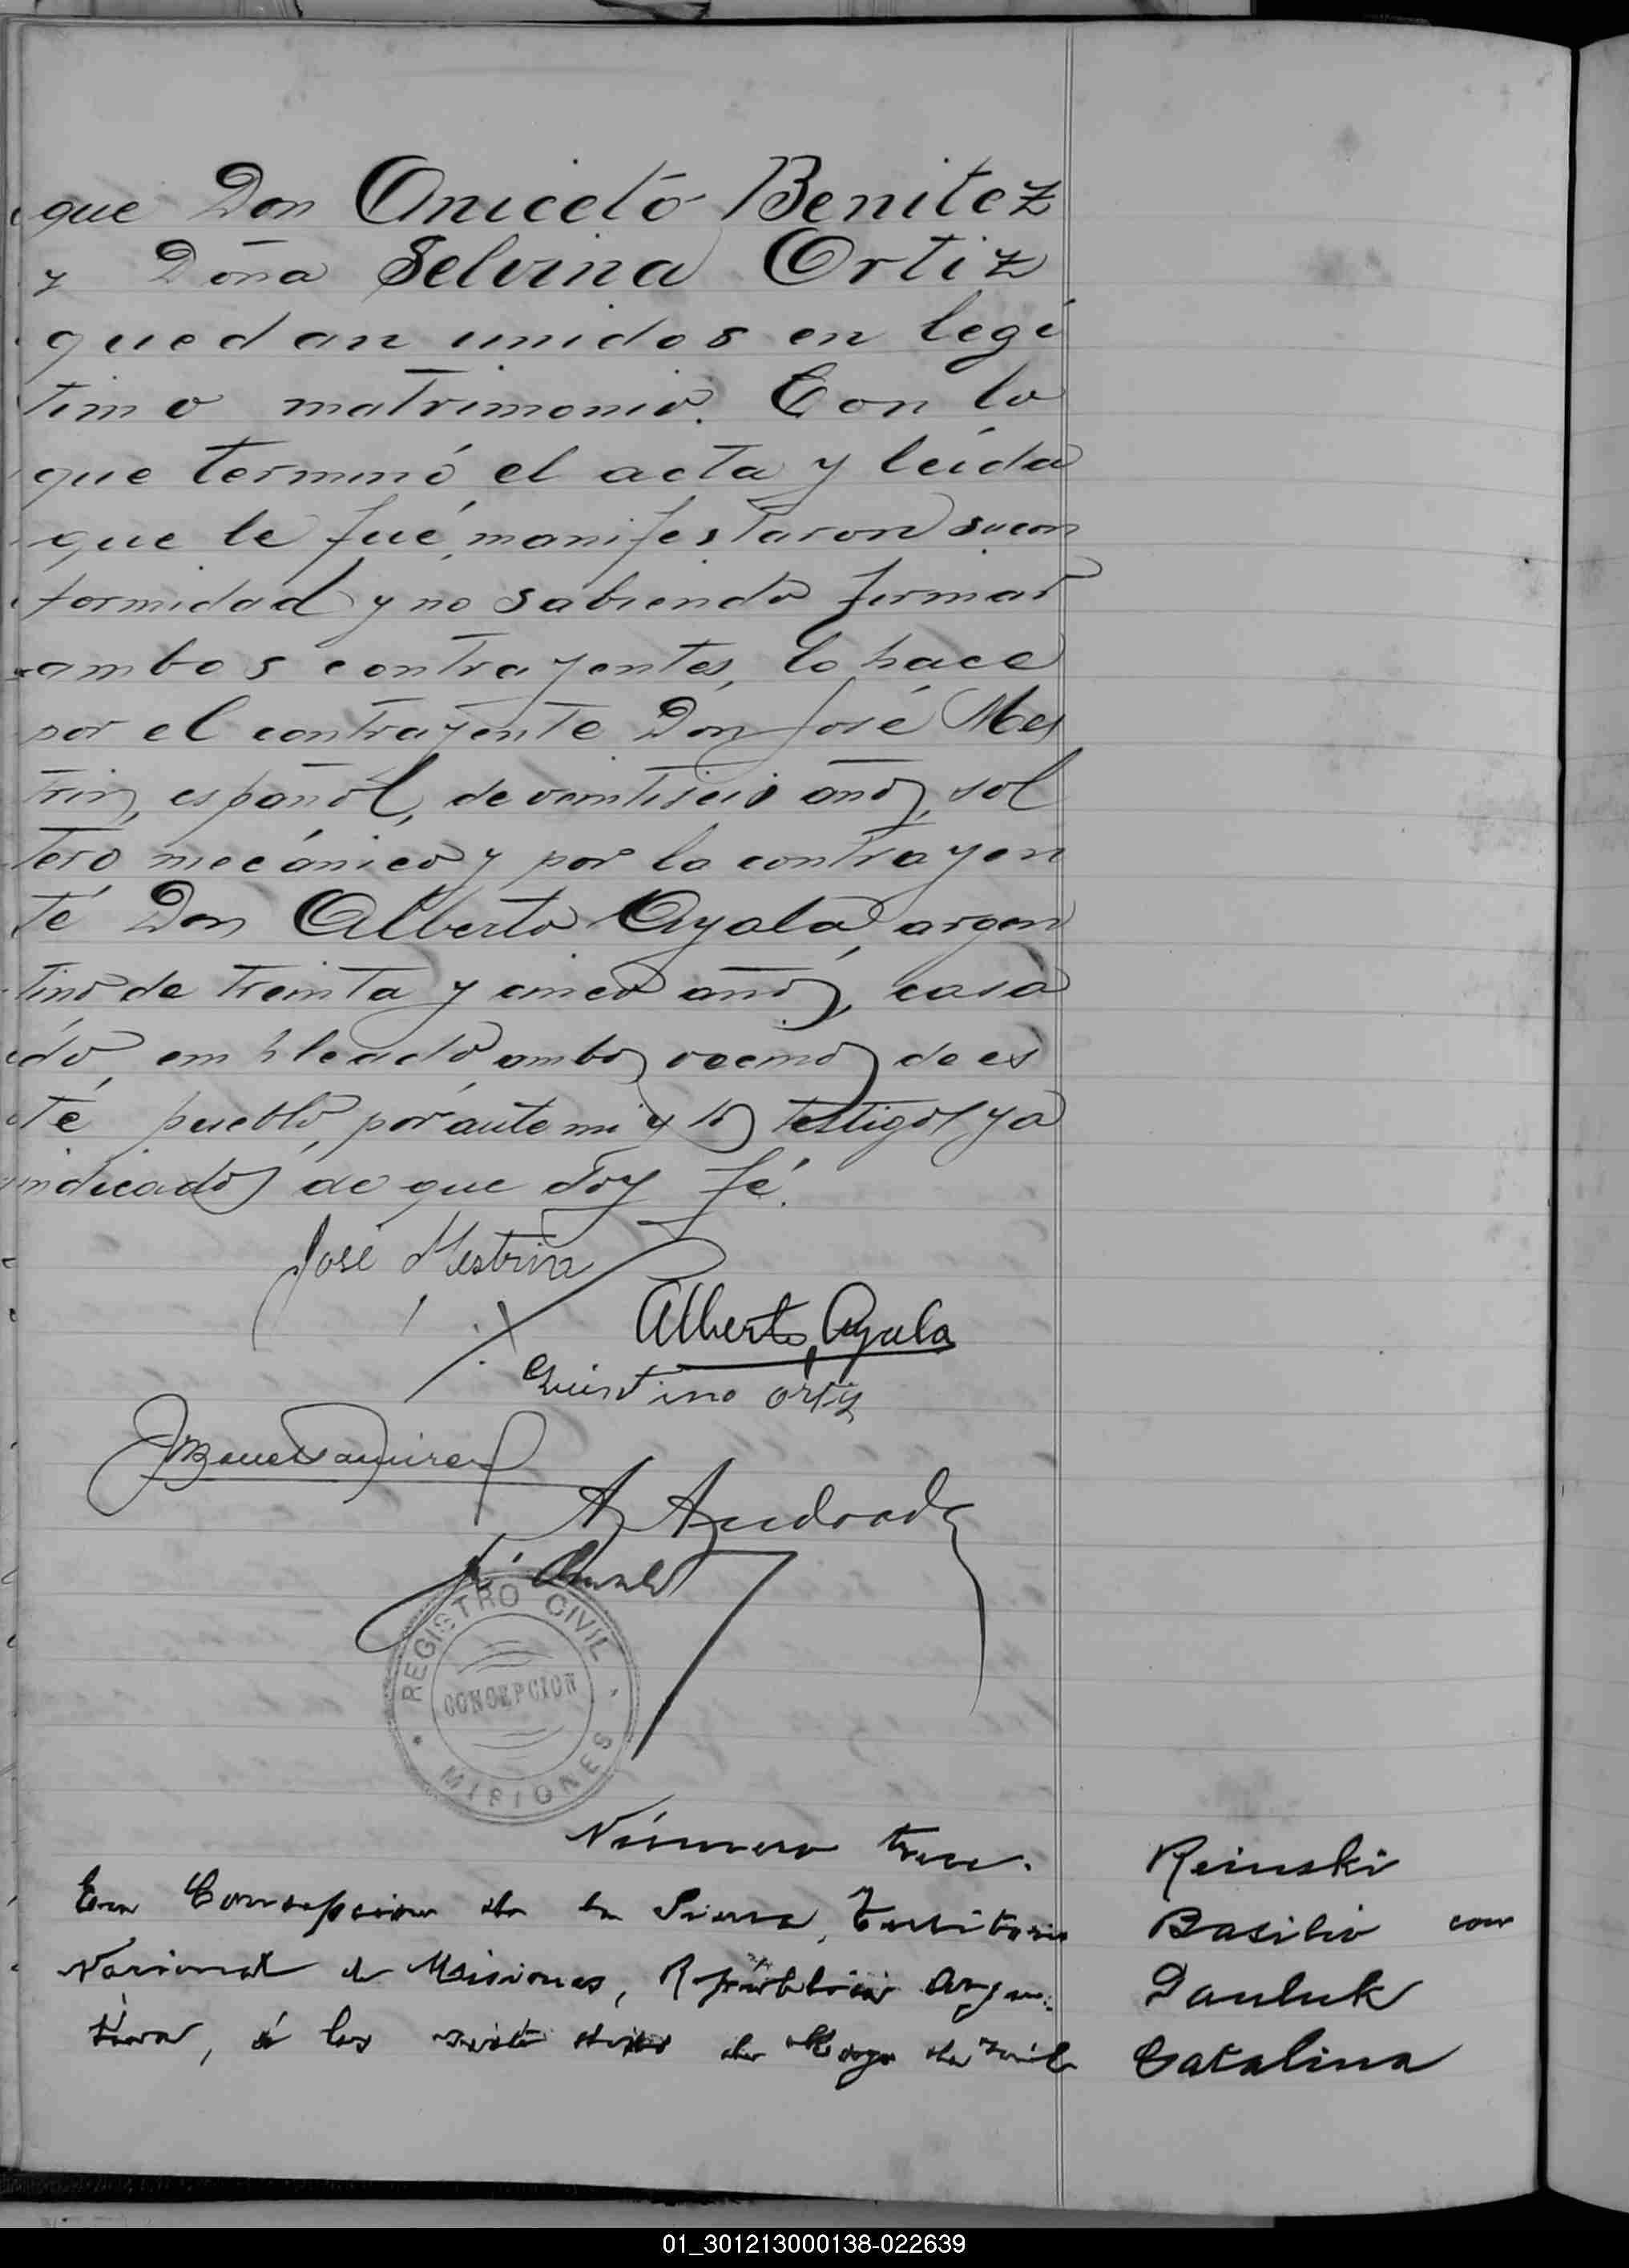 que Don Aniceto Benitez
y Doña Selvina Ortiz
quedan unidos en legi
timo matrimonio. Con lo
que terminó el acta y leída
que le fué, manifestaron su con
formidad y no sabiendo firmar
ambos contrayentes, lo hace
por el contrayente Don José Mes
trin, español, de veintiseis años, sol
tero mecánico y por la contrayen
te Don Alberto Ayala, argen
tino de treinta y cinco años, casa
do, empleado ambos vecinos de es
te pueblo, por ante mi y los testigos ya
indicados de que doy fé.
José Mestrin
Alberto Ayala
Quintino Ortiz
A Andrade
REGISTRO CIVIL
CONCEPCION
MISIONES
Número trece.
Reinski
En Concepcion de la Sierra, Territorio
Basilio con
Nacional de Misiones, República Argen-
Pauluk
tina, á los siete dias de Mayo de mil
Catalina
01_301213000138-022639